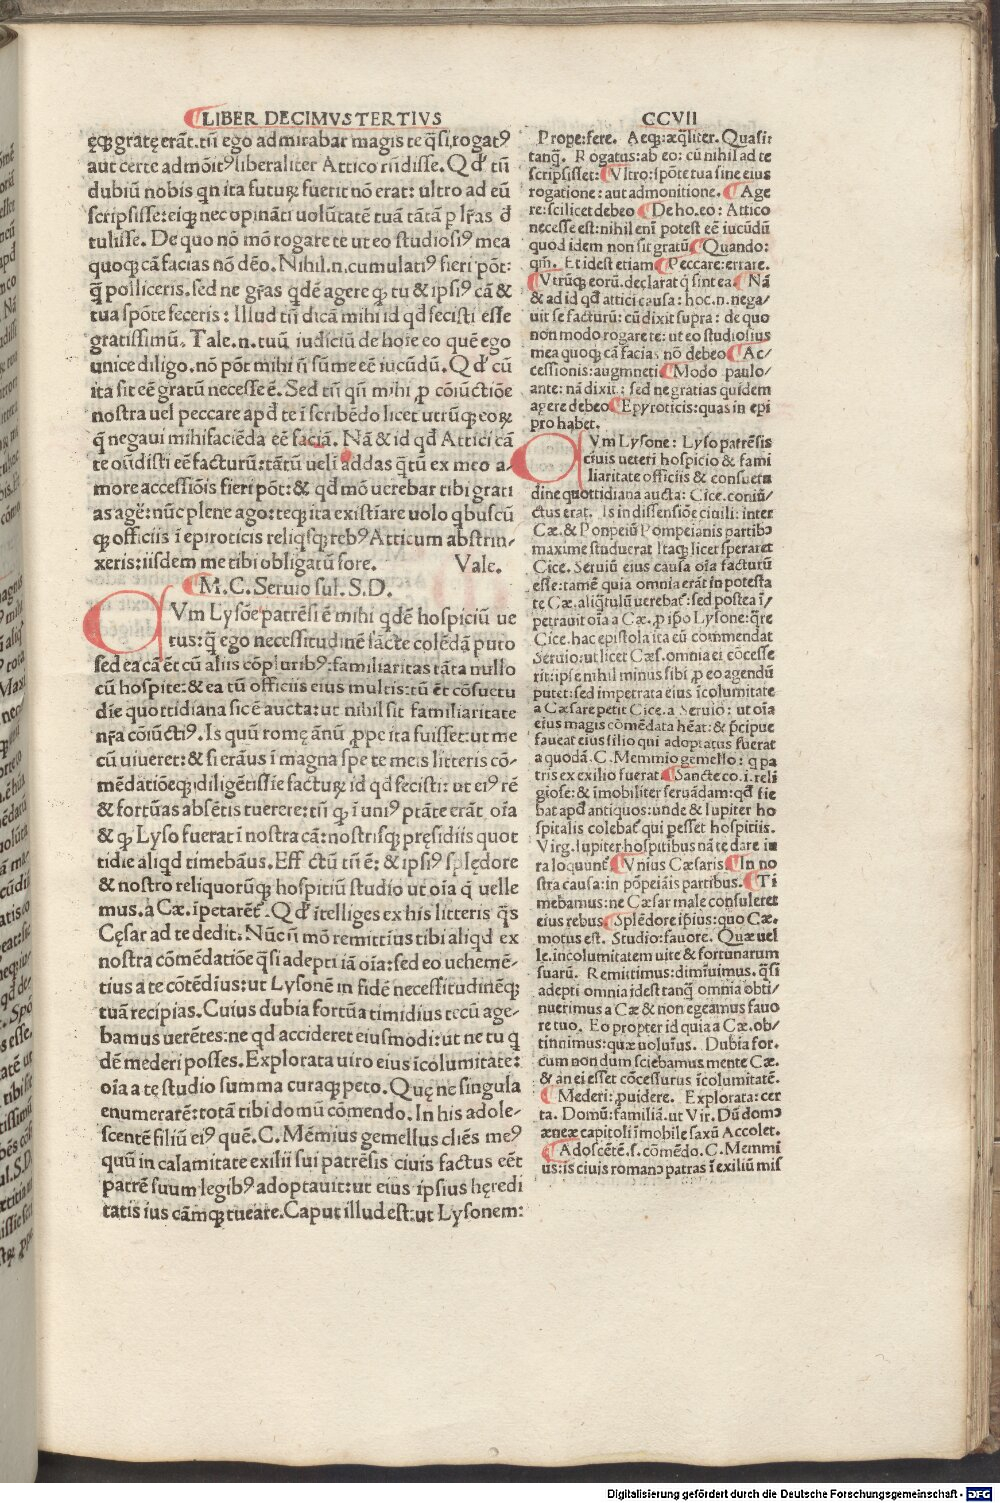 LIBER DECIMVSTERTIVS
CCVII
ęq; gratę erāt. tū ego admirabar magis te q̄si. rogatꝰ
aut certe admōitꝰ liberaliter Attico rn̄disse. Qd' tn̄
dubiū nobis qn ita futuꝝ fuerit nō erat: ultro ad eū
scripsisse: eiq; nec opināti uolūtatē tuā tātā ꝑ lr̄as đ
tulisse. De quo nō mō rogare te ut eo studiosiꝰ mea
quoq; cā facias nō dēo. Nihil .n. cumulatiꝰ fieri pōt:
q̄ polliceris. sed ne gr̄as qdē agere q; tu & ipsiꝰ cā &
tua spōte feceris: Illud tn̄ dicā mihi id qd fecisti esse
gratissimū. Tale .n. tuū iudiciū de hoīe eo quē ego
unice diligo. nō pōt mihi n̄ sūme eē iucūdū. Qd' cū
ita sit eē gratū necesse ē. Sed tn̄ qn̄ mihi ꝓ cōiūctiōe
nostra uel peccare apd te ī scribēdo licet utrūq; eoꝝ
q̄ negaui mihi faciēda eē faciā. Nā & id qd Attici cā
te oūdisti eē facturū: tātū ueli addas q̄tū ex meo a-
more accessiōis fieri pōt: & qd mō uerebar tibi grati
as agē: nūc plene ago: teq; ita existīare uolo qbuscū
q; officiis ī epiroticis reliqsq; rebꝰ Atticum abstrin-
xeris: iisdem me tibi obligatū fore. Vale.
M. C. Seruio sul. S. D.
CVm Lysōe patrēsi ē mihi qdē hospiciū ue
tus: q̄ ego necessitudinē sācte colēdā puto
sed ea cā ēt cū aliis cōpluribꝰ: familiaritas tāta nullo
cū hospite: & ea tū officiis eius multis: tū ēt cōsuetu
dīe quottidiana sic ē aucta: ut nihil sit familiaritate
nr̄a cōiūctiꝰ. Is quū romę ānū ꝓpe ita fuisset: ut me
cū uiueret: & si erāus ī magna spe te meis litteris cō-
mēdatiōeq; diligētissie factuꝝ id qd fecisti: ut eiꝰ rē
& fortūas absētis tuerere: tn̄ q; ī uniꝰ ptāte erāt oīa
& q; Lyso fuerat ī nostra cā: nostrisq; pręsidiis quot
tidie aliqd timebāus. Effectū tn̄ ē: & ipsiꝰ splędore
& nostro reliquorūq; hospitiū studio ut oīa q̄ uelle
mus. a Cæ. īpetarēt̄. Qd' ītelliges ex his litteris q̄s
Cęsar ad te dedit. Nūc n̄ mō remittius tibi aliqd ex
nostra cōmēdatiōe q̄si adepti iā oīa: sed eo uehemē-
tius a te cōtēdius: ut Lysonē in fidē necessitudinēq;
tuā recipias. Cuius dubia fortūa timidius tecū age-
bamus uerētes: ne qd accideret eiusmodi: ut ne tu q
dē mederi posses. Explorata uiro eius īcolumitate:
oīa a te studio summa curaq; peto. Quę ne singula
enumerarē: totā tibi domū cōmendo. In his adole-
scentē filiū eiꝰ quē. C. Mēmius gemellus cliēs meꝰ
quū in calamitate exilii sui patrēsis ciuis factus eēt
patrē suum legibꝰ adoptauit: ut eius ipsius hęredi
tatis ius cāmq; tueare. Caput illud est: ut Lysonem:
Prope: fere. Aeq: æq̄liter. Quasi:
tanq̄. Rogatus: ab eo: cū nihil ad te
scripsisset: Vltro: spōte tua sine eius
rogatione: aut admonitione. Age
re: scilicet debeo De ho. eo: Attico
necesse est: nihil enī potest eē iucūdū
quod idem non sit gratū Quando:
qm̄. Et id est etiam Peccare: errare.
Vtrūq; eorū. declarat q̄ sint ea. Nā
& ad id qd attici causa: hoc .n. nega-
uit se facturū: cū dixit supra: de quo
non modo rogare te: ut eo studiosius
mea quoq; cā facias nō debeo Ac-
cessionis: augmneti Modo paulo-
ante: nā dixit: sed ne gratias quidem
agere debeo Epyroticis: quas in epi
pro habet.
CVm Lysone: Lyso patrēsis
ciuis ueteri hospicio & fami
liaritate officiis & consuetu
dine quottidiana aucta: Cice. coniū-
ctus erat. Is in dissensiōe ciuili: inter
Cæ. & Ponpeiū Pompeianis partibꝰ
maxime studuerat Itaq; licet speraret
Cice. Seruiū eius causa oīa facturū
esse: tamē quia omnia erāt in potesta
te Cæ. aliq̄tulū uerebat̄: sed postea ī-
petrauit oīa a Cæ. ꝓ ipō Lysone: q̄re
Cice. hac epistola ita eū commendat
Seruio: ut licet Cæs. omnia ei cōcesse
rit: ipse nihil minus sibi ꝓ eo agendū
putet: sed impetrata eius īcolumitate
a Cæsare petit Cice. a Seruio: ut oīa
eius magis cōmēdata hēat: & p̄cipue
faueat eius filio qui adoptatus fuerat
a quodā. C. Memmio gemello: q pa
tris ex exilio fuerat. Sancte co. i. reli
giose: & īmobiliter seruādam: qd sie
bat apd antiquos: unde & Iupiter ho
spitalis colebat̄ qui pesset hospitiis.
Virg. Iupiter hospitibus nā te dare iu
ra loquunt̄ Vnius Cæsaris In no
stra causa: in pōpeiāis partibus. Ti
mebamus: ne Cæsar male consuleret
eius rebus. Splēdore ipsius: quo Cæ.
motus est. Studio: fauore. Quæ uel
le. incolumitatem uite & fortunarum
suarū. Remittimus: diminuimus. q̄si
adepti omnia id est tanq̄ omnia obti-
nuerimus a Cæ & non egeamus fauo
re tuo. Eo propter id quia a Cæ. ob-
tinuimus: quæ uoluīus. Dubia for.
cum nondum sciebamus mente Cæ.
& an ei esset cōcessurus īcolumitatē.
Mederi: ꝓuidere. Explorata: cer
ta. Domū: familiā. ut Vir. Dū domꝰ
æneæ capitoli īmobile saxū Accolet.
Adoscētē. s. cōmēdo. C. Memmi
us: is ciuis romanꝰ patras ī exiliū mis
Digitalisierung gefördert durch die Deutsche Forschungsgemeinschaft - DFG